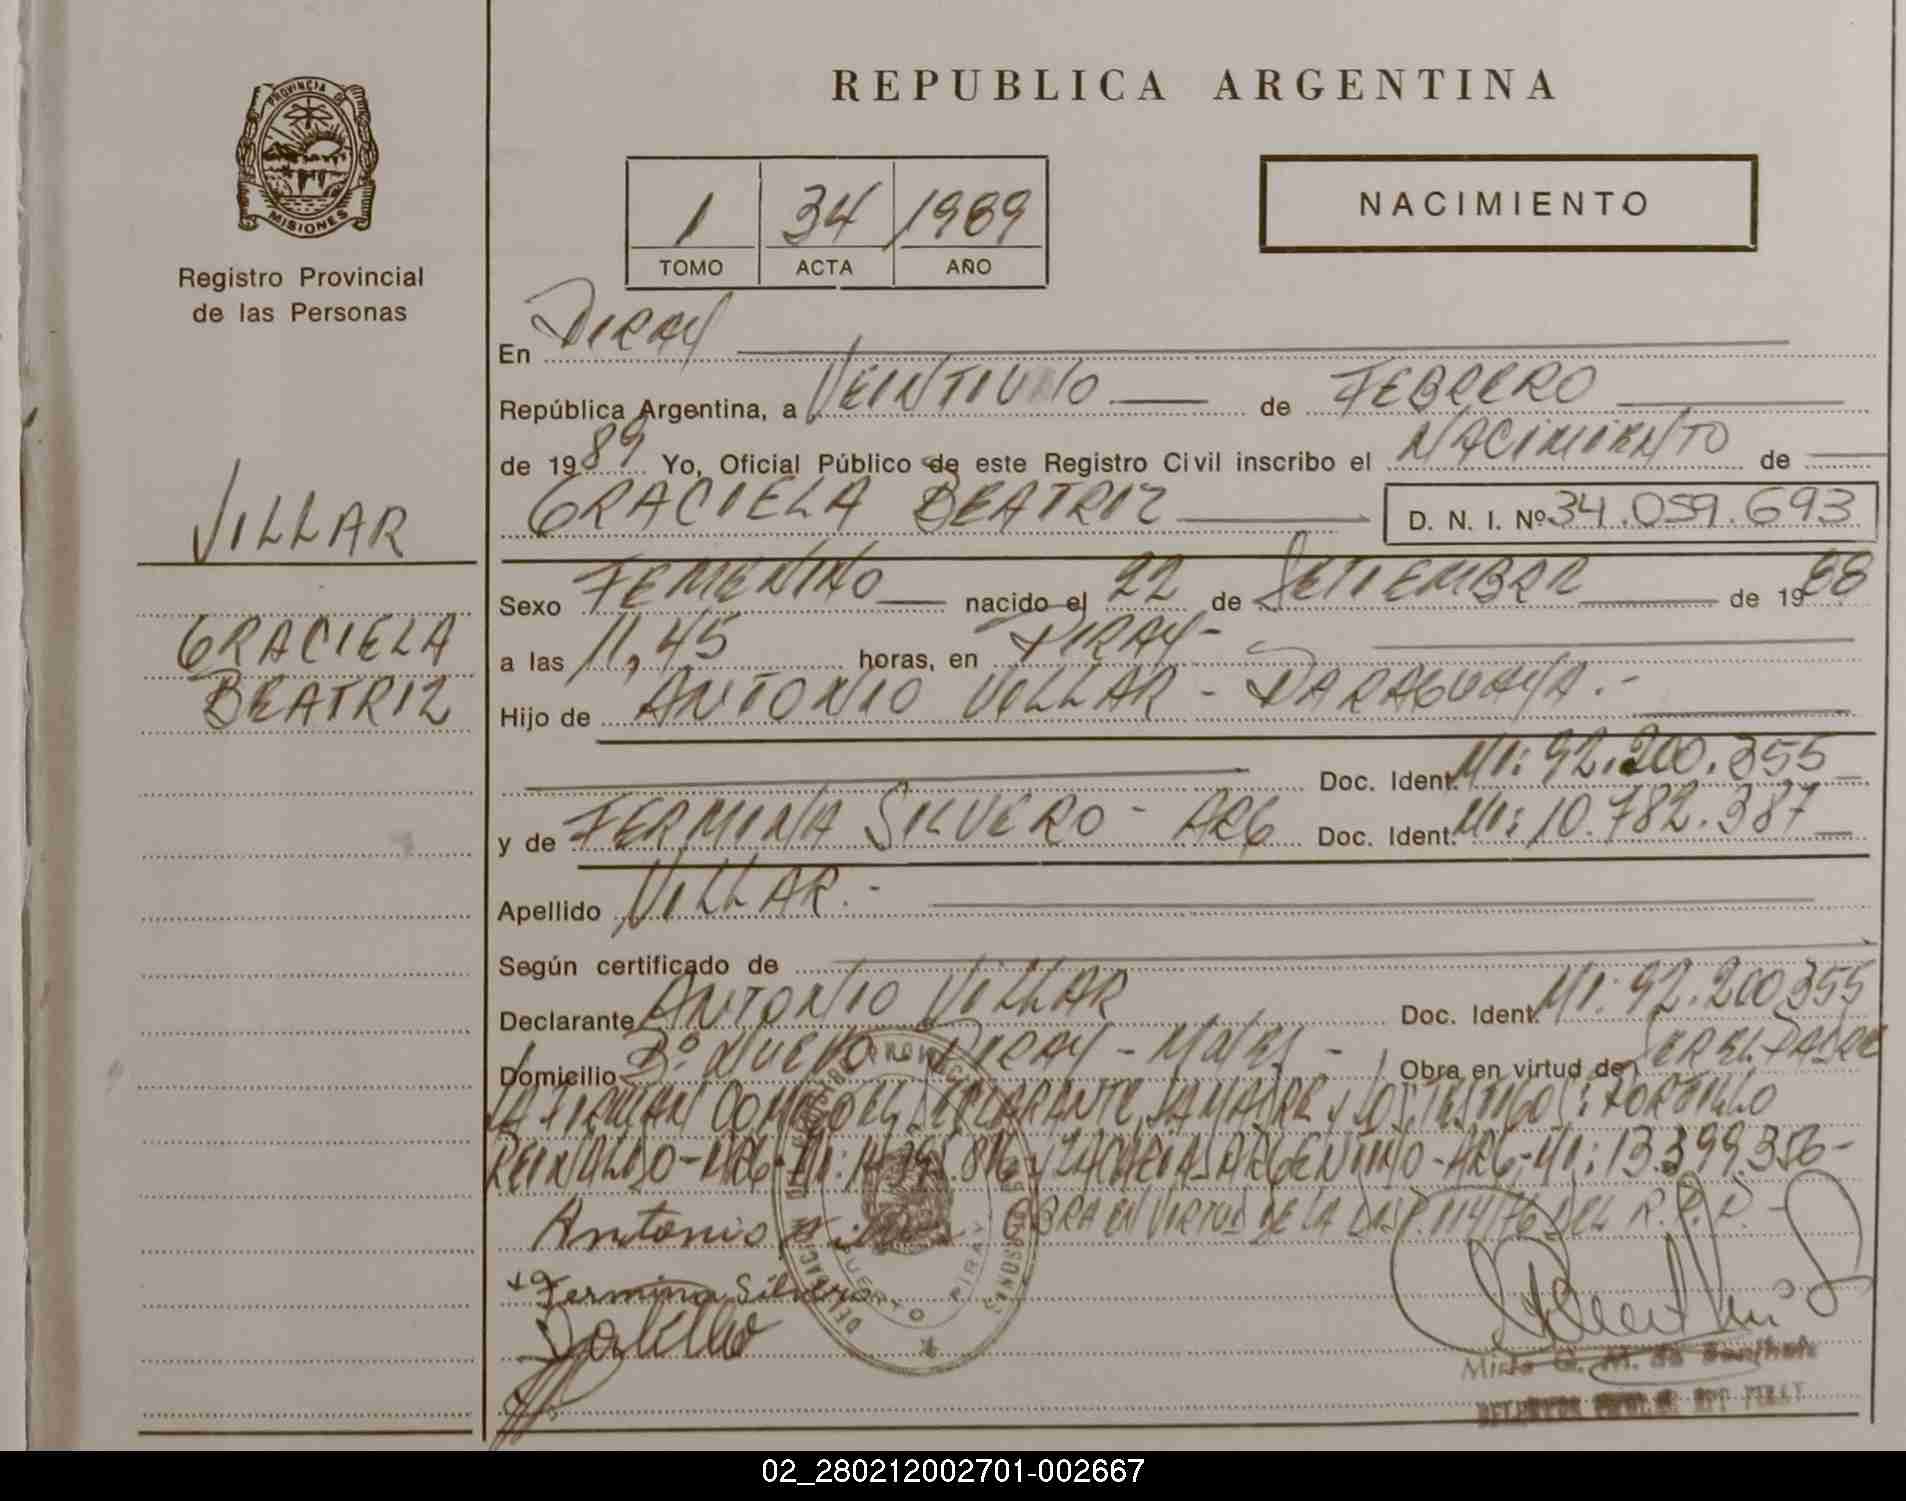 REPUBLICA ARGENTINA
PROVINCIA DE
MISIONES
Registro Provincial
de las Personas
1 34 1989
TOMO ACTA AÑO
NACIMIENTO
En PIRAY
República Argentina, a VEINTIUNO de FEBRERO
de 1989 Yo, Oficial Público de este Registro Civil inscribo el NACIMIENTO de
GRACIELA BEATRIZ D. N. I. Nº 34.059.693
VILLAR
GRACIELA
BEATRIZ
Sexo FEMENINO nacido el 22 de SETIEMBRE de 1988
a las 11,45 horas, en PIRAY-
Hijo de ANTONIO VILLAR - PARAGUAYA.-
Doc. Ident. MI: 92.200.355
y de FERMINA SILVERO - ARG Doc. Ident. MI: 10.782.387
Apellido VILLAR.-
Según certificado de
Declarante ANTONIO VILLAR Doc. Ident. MI: 92.200.355
Domicilio Bº NUEVO PIRAY - MNES - Obra en virtud de SER EL PADRE
LA FIRMAN CONMIGO EL DECLARANTE, LA MADRE Y LOS TESTIGOS: PORTILLO
REINALDO-ARG-MI: Y ZACARIAS ARGENTINO-ARG-MI: 13.399.356-
Antonio Villar OBRA EN VIRTUD DE LA DISP. 114/76 DEL R.P.P.-
Fermina Silvero
PUERTO PIRAY
02_280212002701-002667